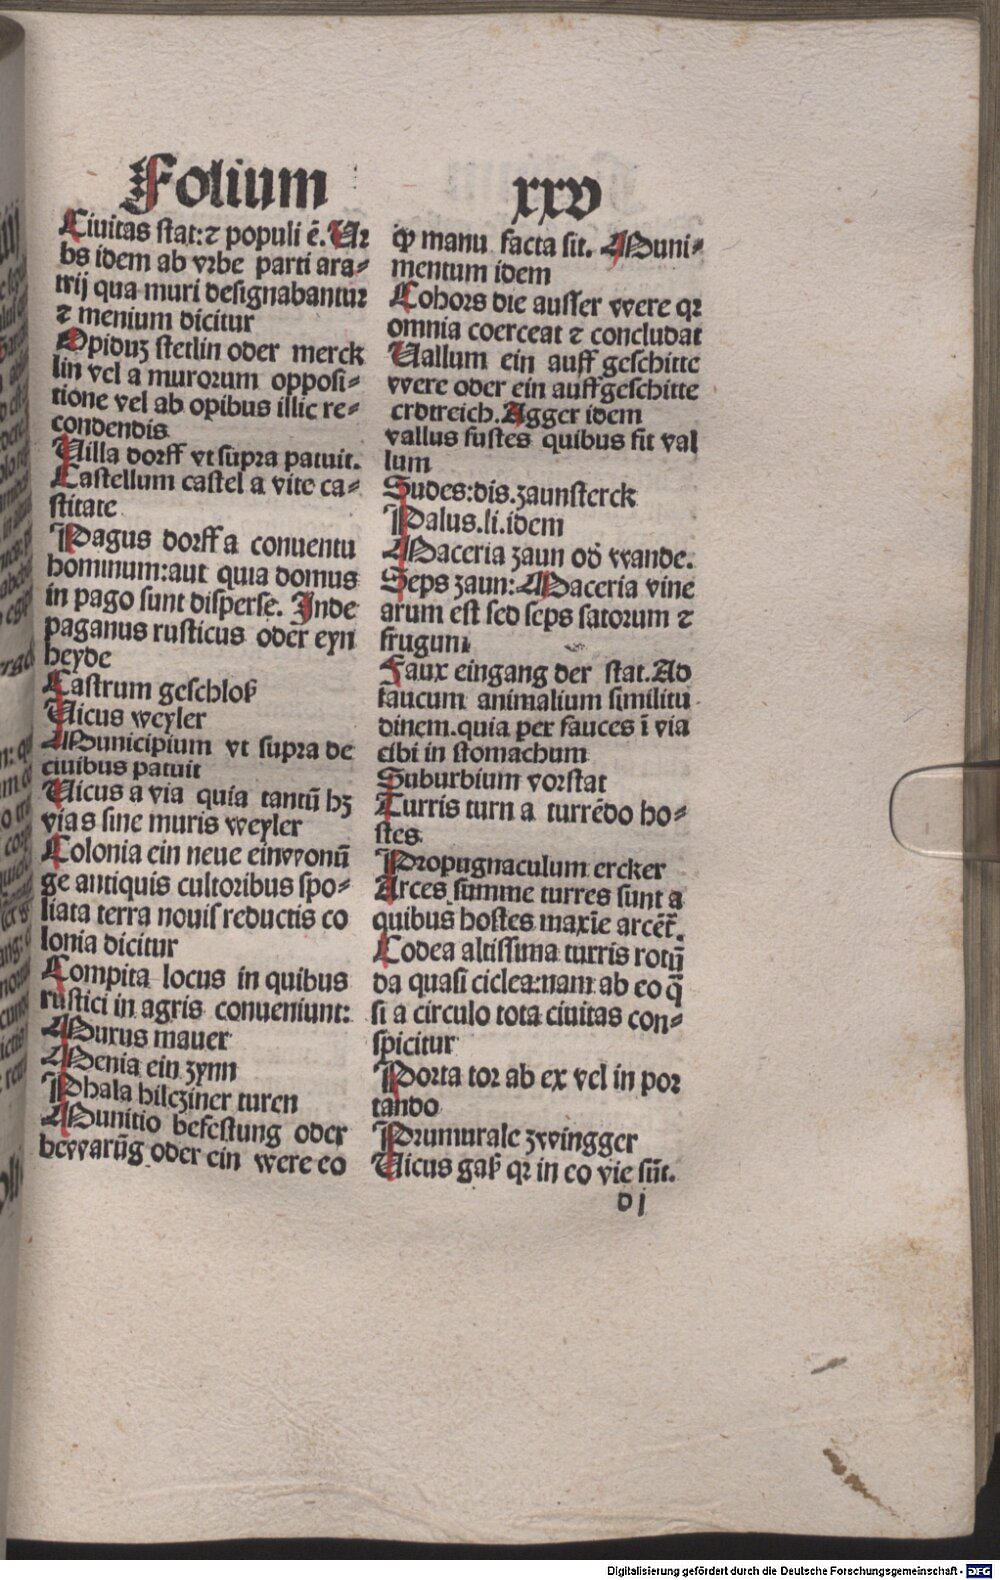 Folium xxv
Ciuitas stat:⁊ populi ē. Ur
bs idem ab vrbe parti ara⸗
trij qua muri designabantur
⁊ menium dicitur
Opiduʒ stetlin oder merck
lin vel a murorum opposi⸗
tione vel ab opibus illic re⸗
condendis
Uilla dorff vt supra patuit.
Castellum castel a vite ca⸗
stitate
Pagus dorff a conuentu
hominum:aut quia domus
in pago sunt disperse. Inde
paganus rusticus oder eyn
heyde
Castrum geschloß
Uicus weyler
Municipium vt supra de
ciuibus patuit
Uicus a via quia tantū hʒ
vias sine muris weyler
Colonia ein neue einwonū
ge antiquis cultoribus spo⸗
liata terra nouis reductis co
lonia dicitur
Compita locus in quibus
rustici in agris conueniunt:
Murus mauer
Menia ein zynn
Phala hilcziner turen
Munitio befestung oder
bewarūg oder ein were eo
ꝙ manu facta sit. Muni⸗
mentum idem
Cohors die ausser were qꝛ
omnia coerceat ⁊ concludat
Uallum ein auff geschitte
were oder ein auffgeschitte
erdtreich. Agger idem
vallus fustes quibus fit val
lum
Sudes:dis.zaunsterck
Palus.li.idem
Maceria zaun od̄ wande.
Seps zaun: Maceria vine
arum est sed seps satorum ⁊
frugum
Faux eingang der stat. Ad
faucum animalium similitu
dinem.quia per fauces ī via
cibi in stomachum
Suburbium vorstat
Turris turn a turrēdo ho⸗
stes
Propugnaculum ercker
Arces summe turres sunt a
quibus hostes maxīe arcēt̄.
Codea altissima turris rotū
da quasi ciclea:nam ab eo q̄
si a circulo tota ciuitas con⸗
spicitur
Porta tor ab ex vel in por
tando
Prumurale zwingger
Uicus gaß qꝛ in eo vie sūt.
d j
Digitalisierung gefördert durch die Deutsche Forschungsgemeinschaft - DFG